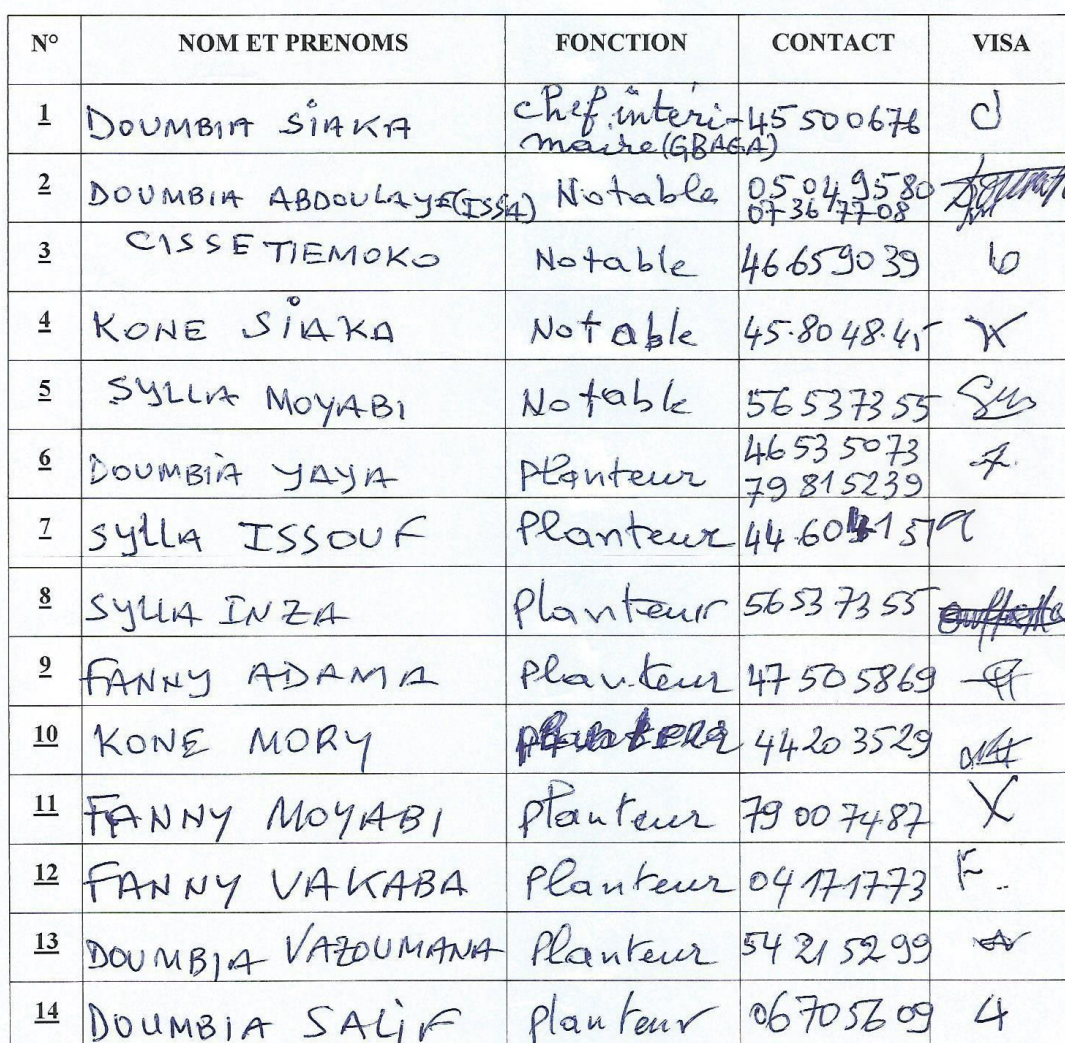 N° NOM ET PRENOMS FONCTION CONTACT VISA
1 DOUMBIA SIAKA Chef intéri- 45 50 06 76
maire (GBAGA)
2 DOUMBIA ABDOULAYE (ISSA) Notable 05 04 95 80
07 36 77 08
3 CISSE TIEMOKO Notable 46 65 90 39
4 KONE SIAKA Notable 45.80 48.45
5 SYLLA MOYABI Notable 56 53 73 55
6 DOUMBIA YAYA Planteur 46 53 50 73
79 81 52 39
7 SYLLA ISSOUF Planteur
8 SYLLA INZA Planteur 56 53 73 55
9 FANNY ADAMA Planteur 47 50 58 69
10 KONE MORY 44 20 35 29
11 FANNY MOYABI Planteur 79 00 74 87
12 FANNY VAKABA Planteur 04 17 17 73 F.
13 DOUMBIA VAZOUMANA Planteur 54 21 52 99
14 DOUMBIA SALIF planteur 06 70 56 09